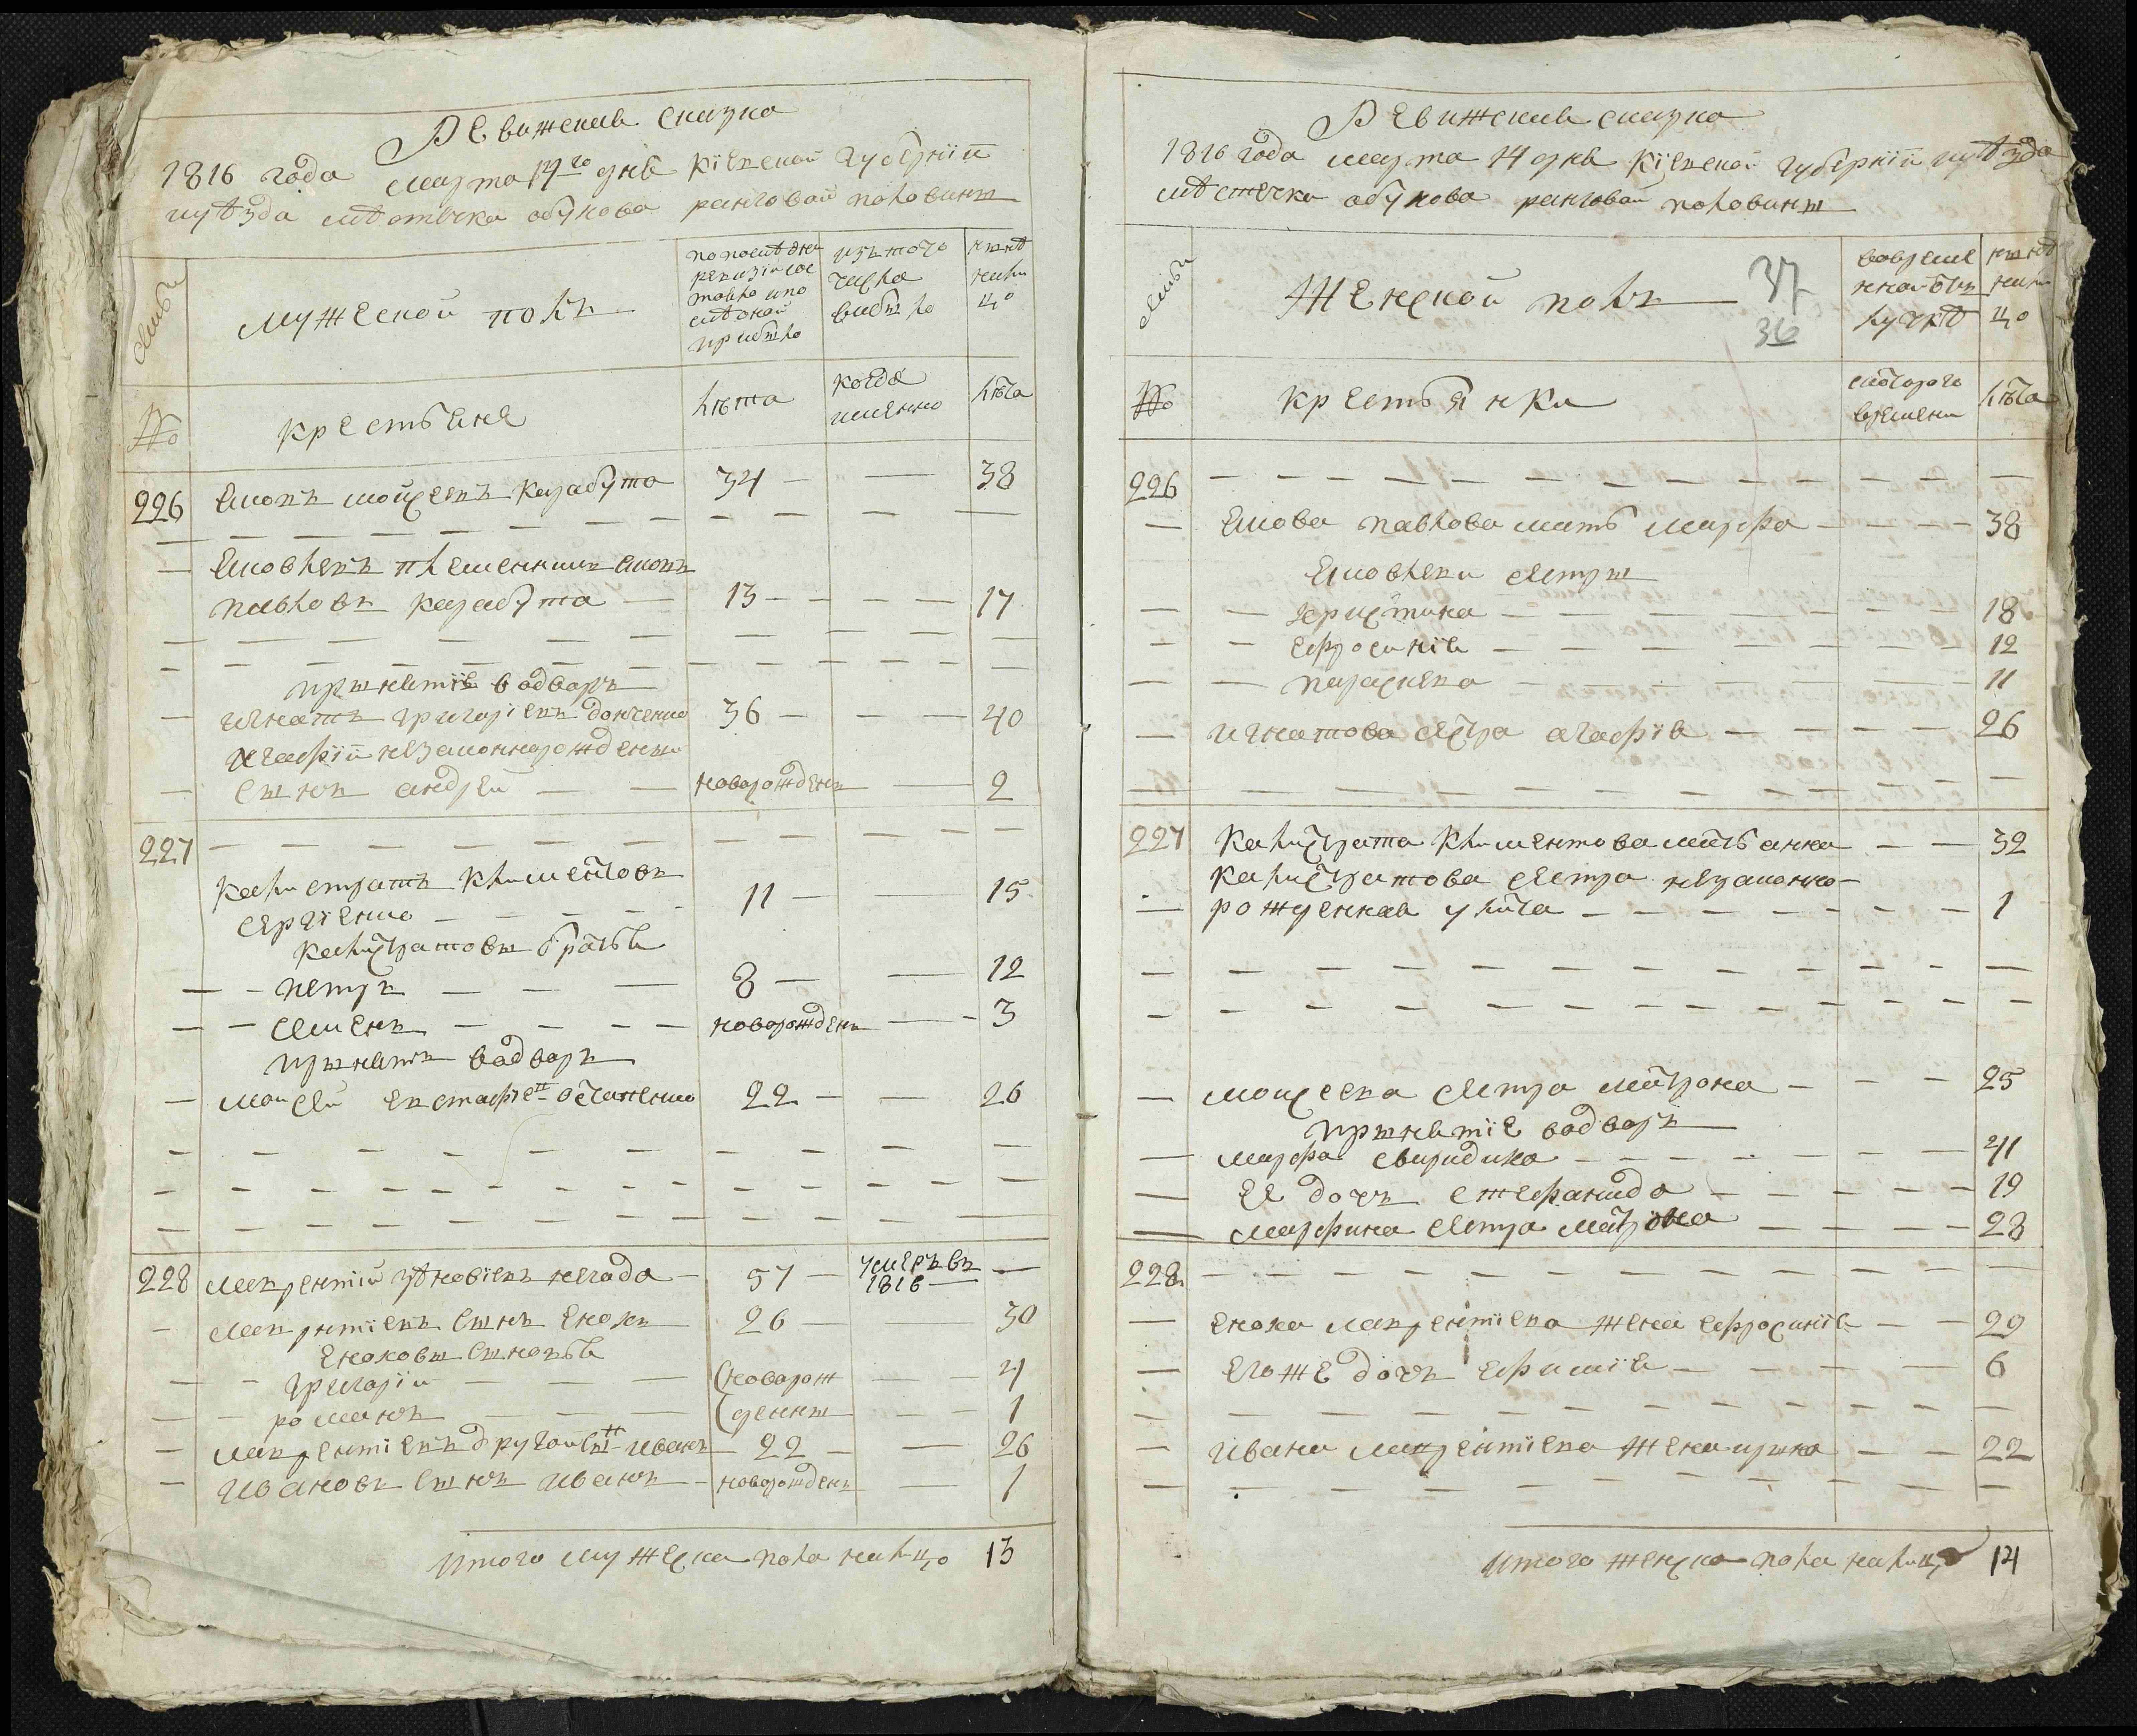 Ревижская сказка
1816 года марта 14го дня Кіевской губерніи
уѣзда мѣстечка обухова ранговой половины
семьи
мужеской полъ
по последней ревизіи состояло и после оной прибыло
изъ того числа выбыло
ныне налицо
№
крестьяне
лѣта
когда именно
лѣта
226 Яковъ мойсеевъ карабута 34 — — 38
Яковлевъ племенникъ яковъ
павловъ карабута — 13 — — 17
принятіе водворъ
игнатъ григоріевъ донченко 36 — — 40
агафіи незаконнорожденный
сынъ андрей — новорожденъ — 2
227
Калистратъ Климентовъ
сергіенко — 11 — — 15
Калистратовы братья
— петръ — 8 — — 12
— семенъ — новорожденъ — 3
принятъ водворъ
— мойсей евстафіевъ остапенко 22 — — 26
228 лаврентій зѣновіевъ негода — 57 — умеръ въ 1816 —
— лаврентіевъ сынъ енохъ 26 — — 30
еноховы сыновья
— григорій — (новорож — 4
— романъ — (денны — 1
— лаврентіевъ другой сынъ иванъ — 22 — — 26
— ивановъ сынъ иванъ — новорожденъ — 1
Итого мужеска пола налицо 13
Ревижская сказка
1816 года марта 14 дня Кіевской губерніи уѣзда
мѣстечка обухова ранговой половины
семьи
Женской полъ
37
36
во временной отлучкѣ
ныне налицо
№
крестьянки
с которого времени
лѣта
226
— Якова павлова мать марфа — 38
Яковлеви сестры
— христина — 18
— ефросинія — 12
— параскева — 11
— игнатова сестра агафія — 26
227 Калистрата Климентова мать анна — 32
Калистратова сестра незаконно-
— рожденная улита — 1
— мойсеева сестра матрона — 25
принятіе водворъ
— марфа свиридика — 41
— ея дочь стефанида — 19
— марфина сестра матрона — 28
228
— еноха лаврентіева жена ефросинія — 29
— его же дочь ефимія — 6
— ивана лаврентіева жена ирина — 22
Итого женска пола налицо 14